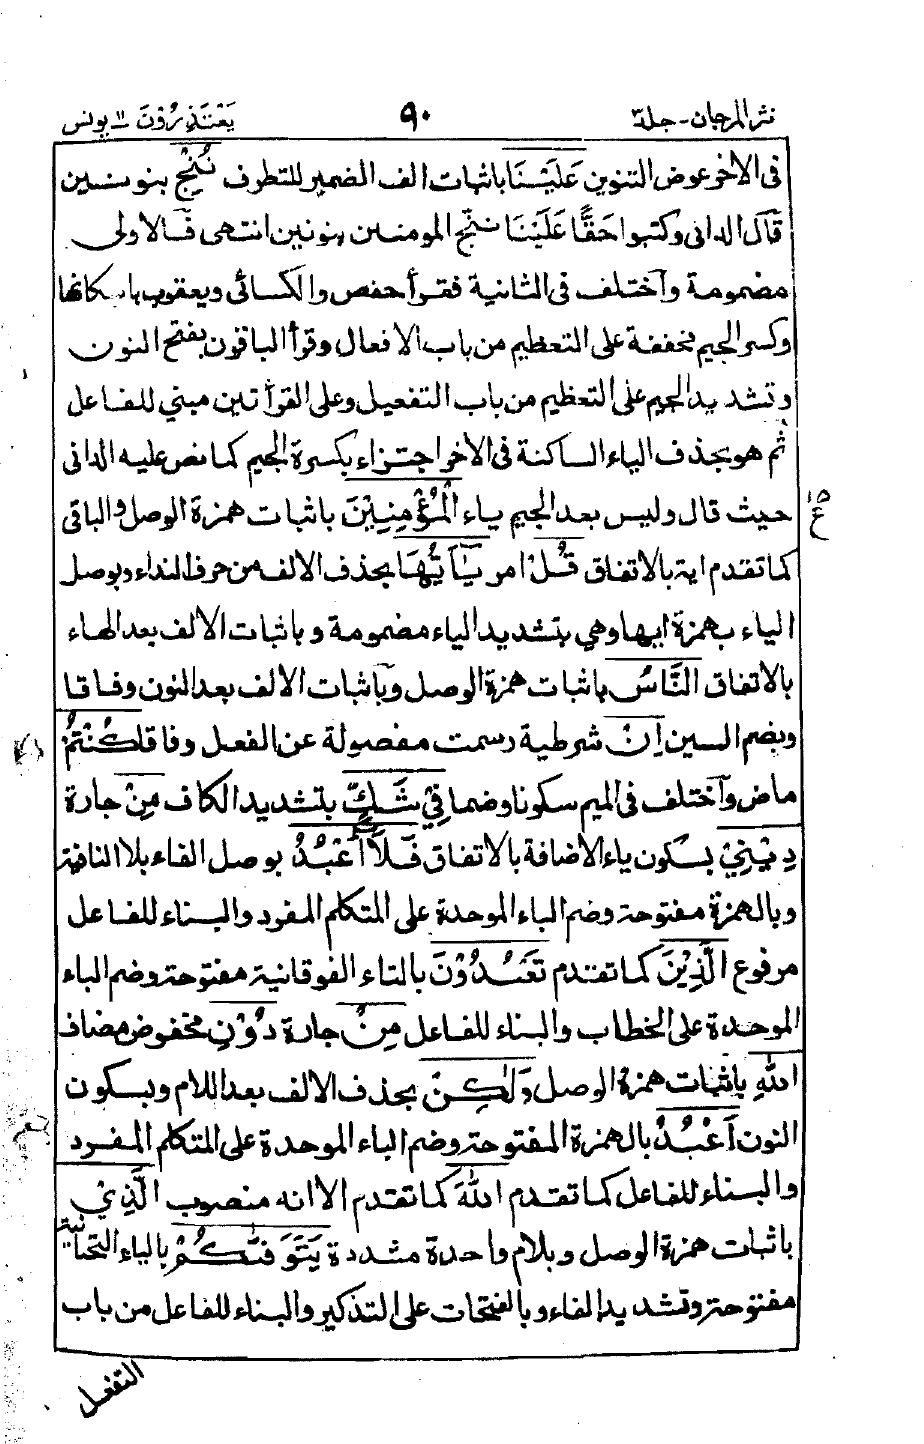 نثر المرجان - جلد ٣
٩٠
يَعْتَذِرُوْنَ ١١ يونس
فى الاخر عوض التنوين عَلَيْنَا باثبات الف الضمير للتطرف نُنْجِ بنونين
قال الدانى وكتبوا حَقًّا عَلَيْنَا ننج المومنين بنونين انتهى فالاولى
مضمومة واختلف فى الثانية فقرأ حفص والكسائى ويعقوب باسكانها
وكسر الجيم مخففة على التعظيم من باب الافعال وقرأ الباقون بفتح النون
وتشديد الجيم على التعظيم من باب التفعيل وعلى القرأتين مبني للفاعل
ثم هو بحذف الياء الساكنة فى الاخر اجتزاء بكسرة الجيم كما نص عليه الدانى
حيث قال وليس بعد الجيم ياء الْمُؤْمِنِيْنَ باثبات همزة الوصل والباقى
كما تقدم اية بالاتفاق قُلْ امر يٰٓاَيُّهَا بحذف الالف من حرف النداء وبوصل
الياء بهمزة ايها وهي بتشديد الياء مضمومة وباثبات الالف بعد الهاء
بالاتفاق النَّاسُ باثبات همزة الوصل وباثبات الالف بعد النون وفاقا
وبضم السين اِنْ شرطية رسمت مفصولة عن الفعل وفاقا كُنْتُمْ
ماض واختلف فى الميم سكونا وضما فِيْ شَكٍّ بتشديد الكاف مِنْ جارة
دِيْنِيْ بسكون ياء الاضافة بالاتفاق فَلَآ اَعْبُدُ بوصل الفاء بلا النافية
وبالهمزة مفتوحة وضم الباء الموحدة على المتكلم المفرد والبناء للفاعل
مرفوع الَّذِيْنَ كما تقدم تَعْبُدُوْنَ بالتاء الفوقانية مفتوحة وضم الباء
الموحدة على الخطاب والبناء للفاعل مِنْ جارة دُوْنِ مخفوض مضاف
اللّٰهِ باثبات همزة الوصل وَلٰكِنْ بحذف الالف بعد اللام وبسكون
النون اَعْبُدُ بالهمزة المفتوحة وضم الباء الموحدة على المتكلم المفرد
والبناء للفاعل كما تقدم اللّٰهَ كما تقدم الا انه منصوب الَّذِيْ
باثبات همزة الوصل وبلام واحدة مشددة يَتَوَفّٰىكُمْ بالياء التحتانية
مفتوحة وتشديد الفاء وبالفتحات على التذكير والبناء للفاعل من باب
التفعل
١٥
ع